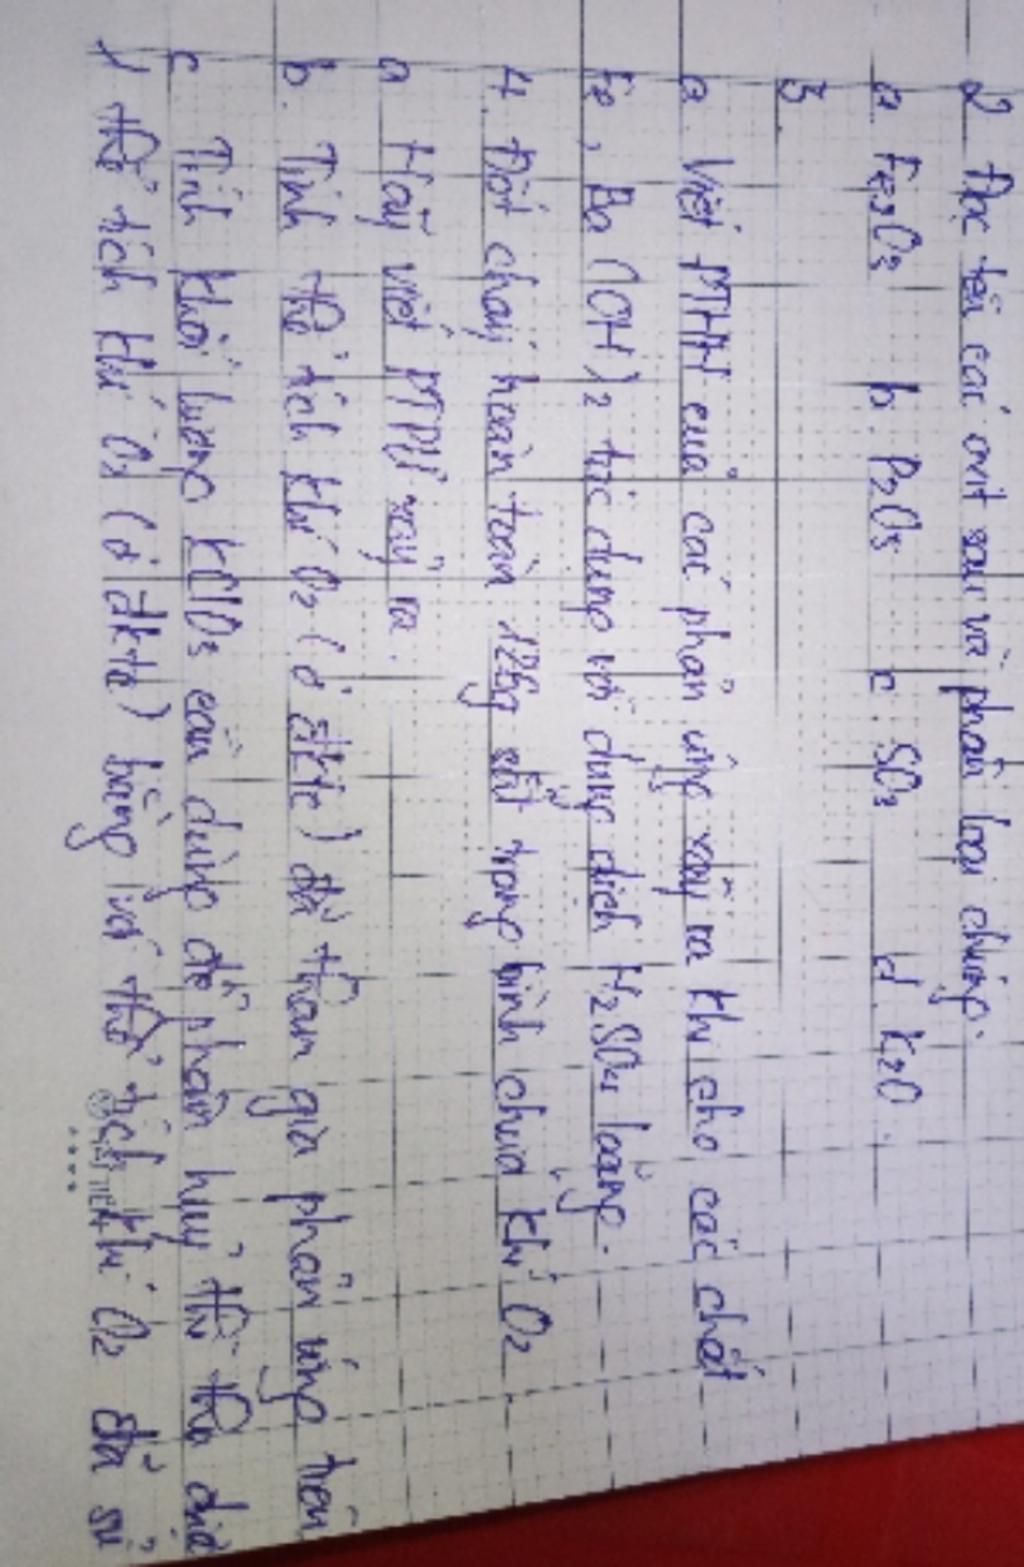 2. Đọc tên các oxit sau và phân loại chúng.
a. Fe2O3 b. P2O5 c. SO3 d. K2O.
3.
a. Viết PTHH của các phản ứng xảy ra khi cho các chất
Fe, Ba (OH)2 tác dụng với dung dịch H2SO4 loãng.
4. Đốt cháy hoàn toàn 126g sắt trong bình chứa khí O2.
a Hãy viết PTPƯ xảy ra.
b. Tính thể tích khí O2 (ở đktc) đã tham gia phản ứng trên
c Tính khối lượng KClO3 cần dùng để phân huỷ thì thu được
1 thể tích khí O2 (ở đktc) bằng với thể tích khí O2 đã sử